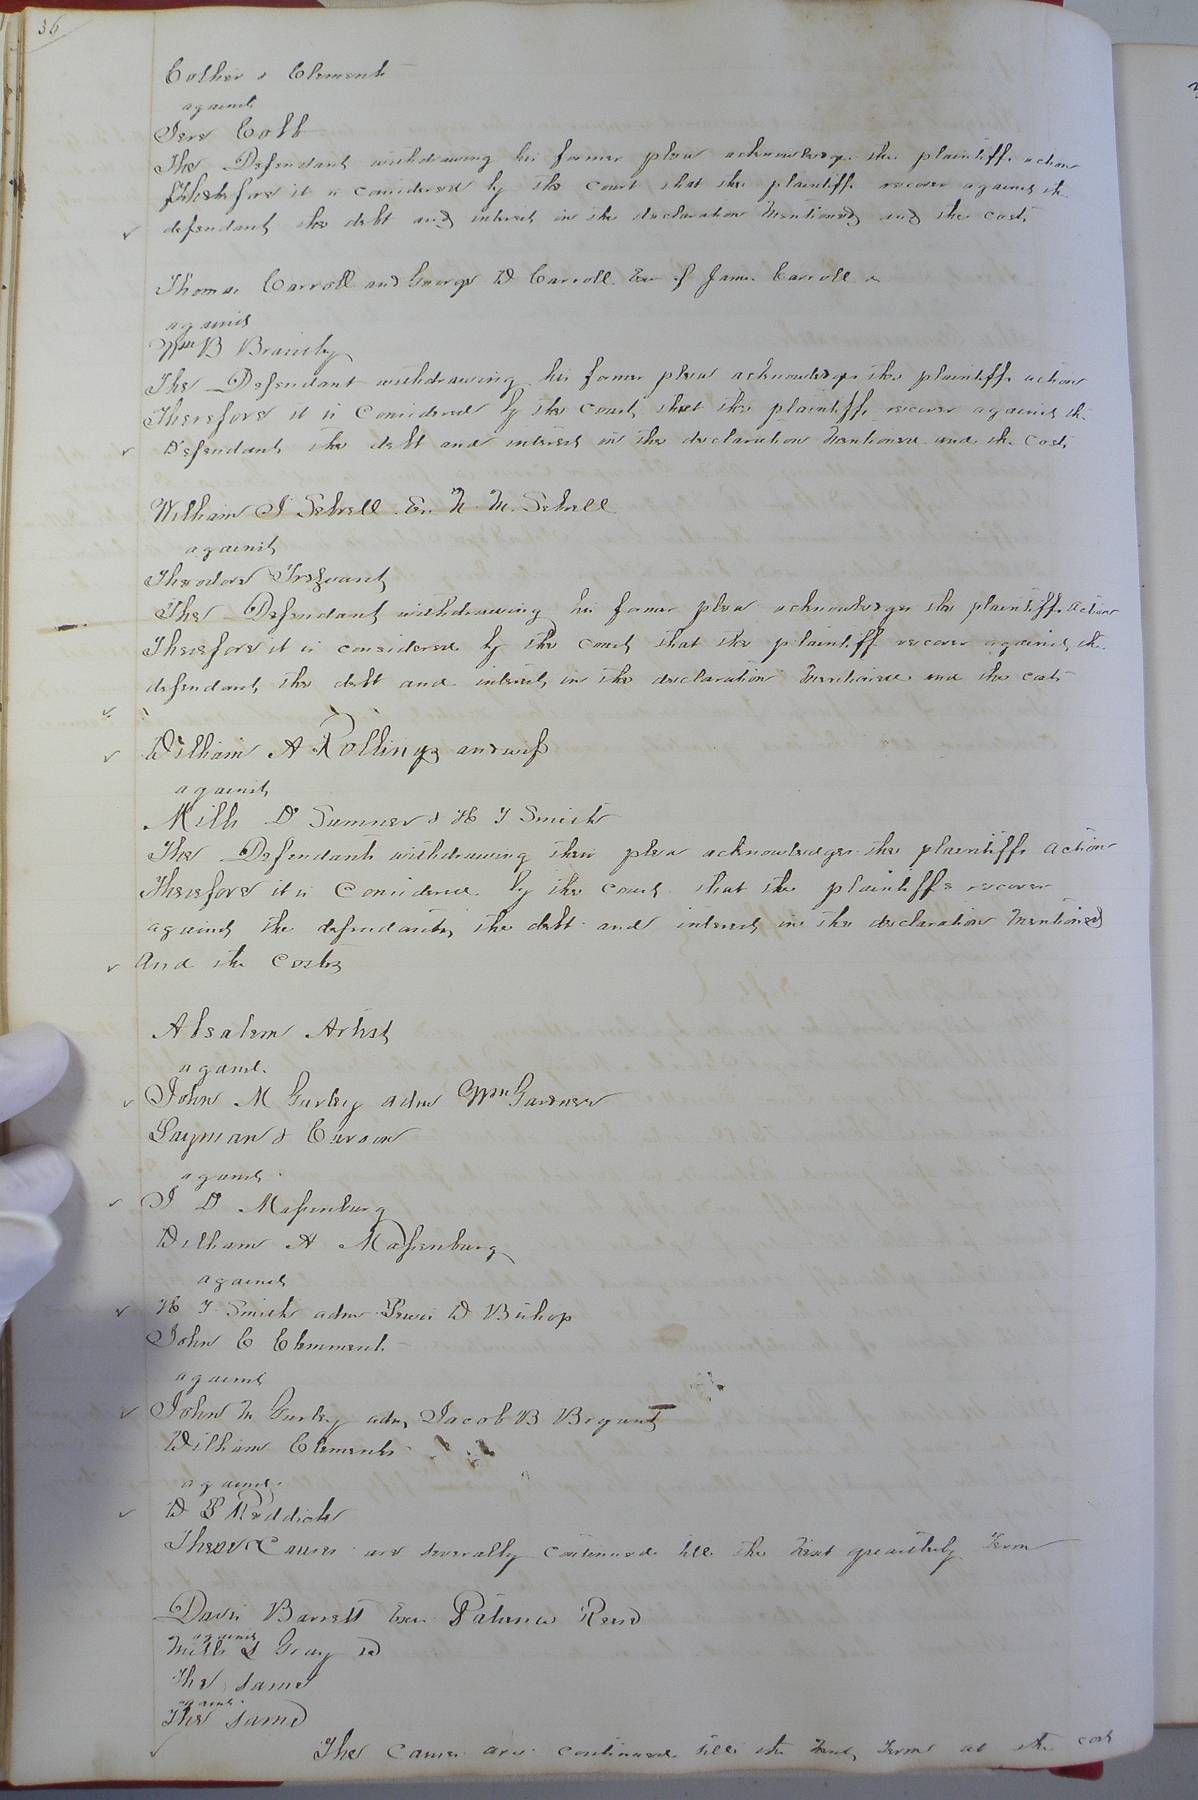 36
Cother & Clements
against
Jere Cobb
The Defendant withdrawing his former plea acknowledge the plaintiffs action
Therefore it is considered by the court that the plaintiffs recover against the
defendant the debt and interest in the declaration mentioned and the costs
Thomas Carroll and George D Carroll Exr of James Carroll
against
Wm B Brantley
The Defendant withdrawing his former plea acknowledge the plaintiffs action
Therefore it is Considered by the court that the plaintiffs recover against the
Defendant the debt and interest in the declaration mentioned and the Costs
William J Sebrell Exr N. M. Sebrell
against
Theodore Trezvant
The Defendant withdrawing his former plea acknowledges the plaintiffs action
Therefore it is considered by the court that the plaintiff recover against the
defendant the debt and interest in the declaration mentioned and the costs
William A Rollings and wife
against
Mills D Sumner & H T Smith
The Defendants withdrawing their plea acknowledges the plaintiffs action
Therefore it is Considered by the court that the plaintiffs recover
against the defendants the debt and interest in the declaration mentioned
And the Costs
Absalem Artist
against
John M Gurley adm Wm Gardner
Layman & Curson
against
J D Massenburg
William A Massenburg
against
H T Smith adm Lewis D Bishop
John C Clemment
against
John M Gurley adm Jacob B Bryant
William Clements
against
D P Reddick
These Causes are severally continued till the next quarterly Term
Davis Barrett Exr Patience Reid
against
Mills L Gray
The same
against
The same
The Causes are continued till the next Term at the cost